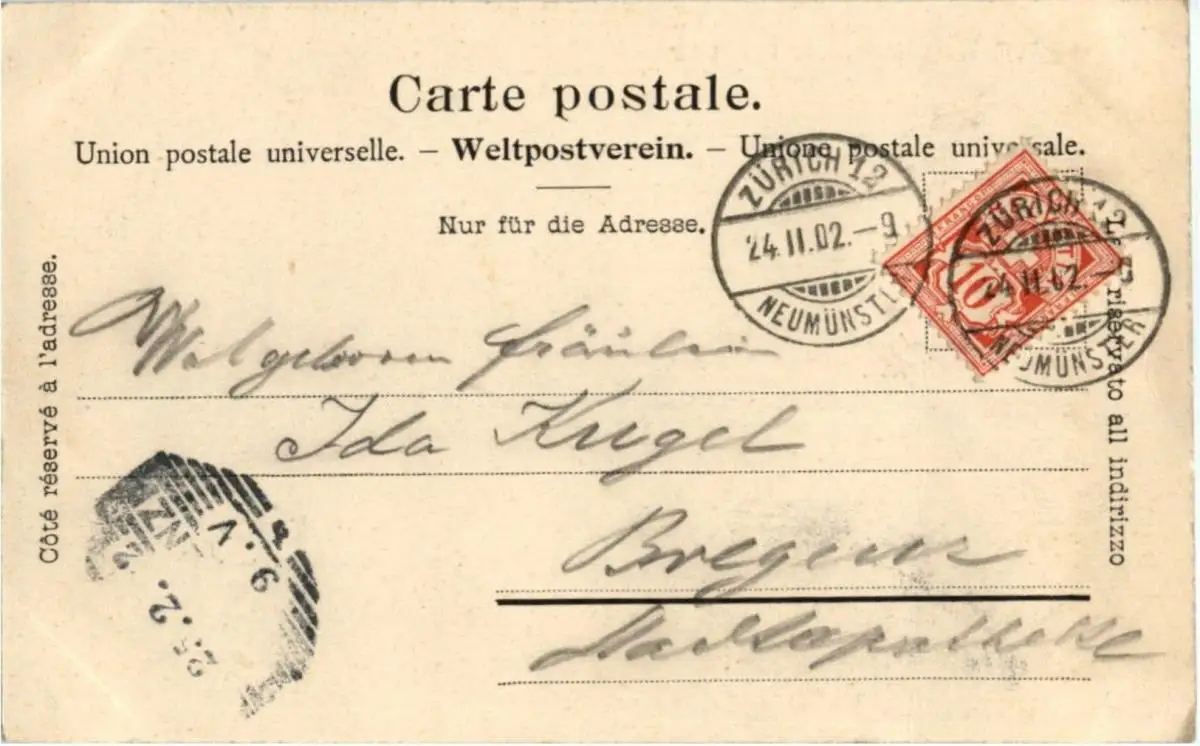 Carte postale.
Union postale universelle. – Weltpostverein. – Unione postale universale.
Nur für die Adresse.
Côté réservé à l'adresse.
ZÜRICH 12
24.II.02.–9
NEUMÜNSTER
ZÜRICH 12
24.II.02.–
NEUMÜNSTER
10
Lato riservato all indirizzo
Wolgeboren Fräulein
Ida Kugel
Bregenz
Stadtapotheke
25.2.
9.V